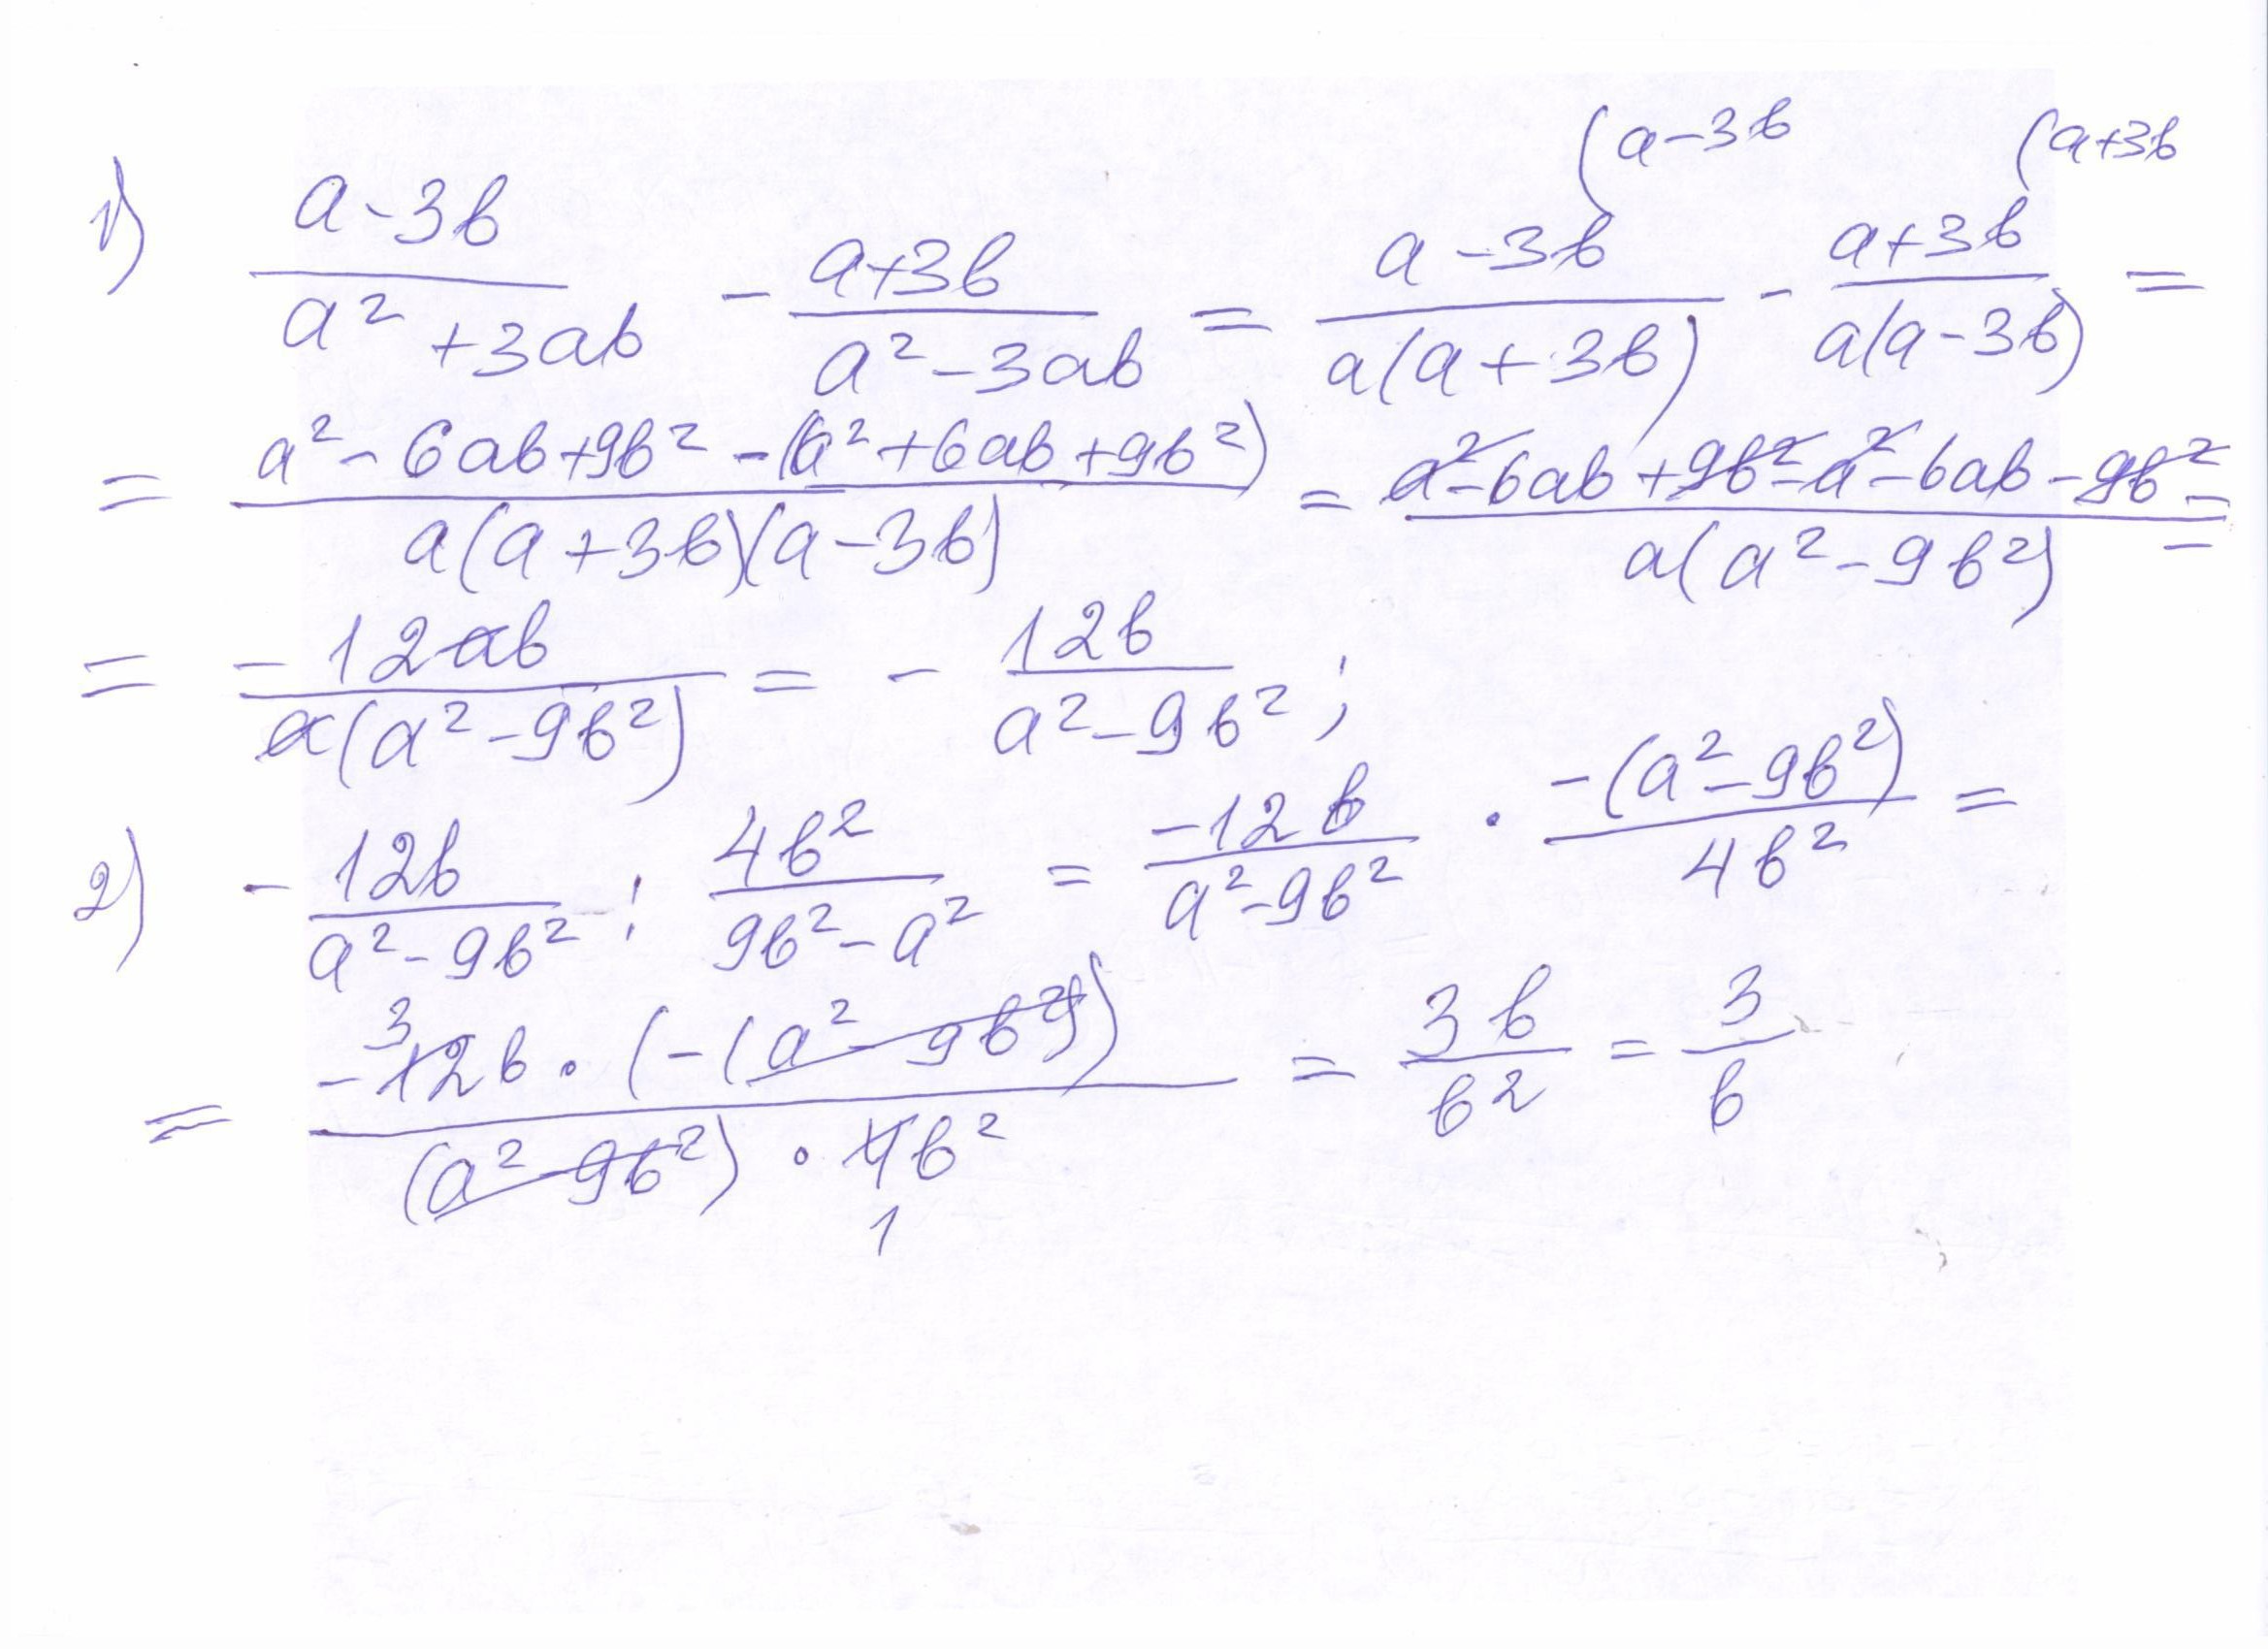 1) (a-3b)/(a²+3ab) - (a+3b)/(a²-3ab) = (a-3b)/(a(a+3b)) (a-3b - (a+3b)/(a(a-3b)) (a+3b =
= (a²-6ab+9b²-(a²+6ab+9b²))/(a(a+3b)(a-3b)) = (a²-6ab+9b²-a²-6ab-9b²)/(a(a²-9b²)) =
= (-12ab)/(a(a²-9b²)) = - (12b)/(a²-9b²) ;
2) - (12b)/(a²-9b²) : (4b²)/(9b²-a²) = (-12b)/(a²-9b²) · (-(a²-9b²))/(4b²) =
= (-12b · (-(a²-9b²)))/((a²-9b²) · 4b²) 3 1 = (3b)/(b²) = 3/b